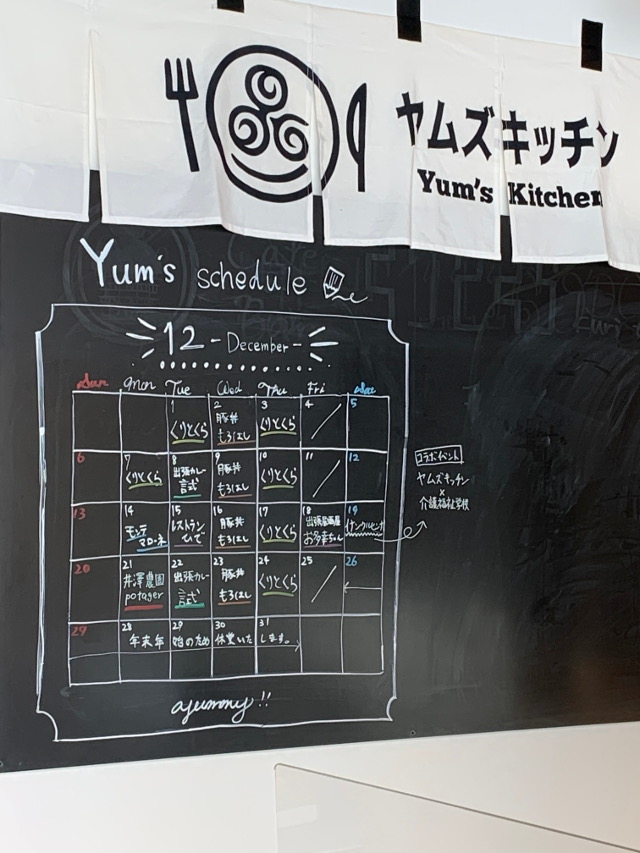 ヤムズキッチン
Yum's Kitchen
Yum's schedule
12 - December -
Sun Mon Tue Wed Thu Fri Sat
1 2 3 4 5
くりとくら 豚丼 もろはし くりとくら
6 7 8 9 10 11 12
くりとくら 出張カレー 試 豚丼 もろはし くりとくら
13 14 15 16 17 18 19
モンテ マローネ レストラン 豚丼 もろはし くりとくら お多幸ちゃん
20 21 22 23 24 25 26
井澤農園 potager 出張カレー 試 豚丼 もろはし くりとくら
29 28 29 30 31
年末年始のため休業いたします。
ayummy!!
コラボイベント
ヤムズキッチン
×
介護福祉学校